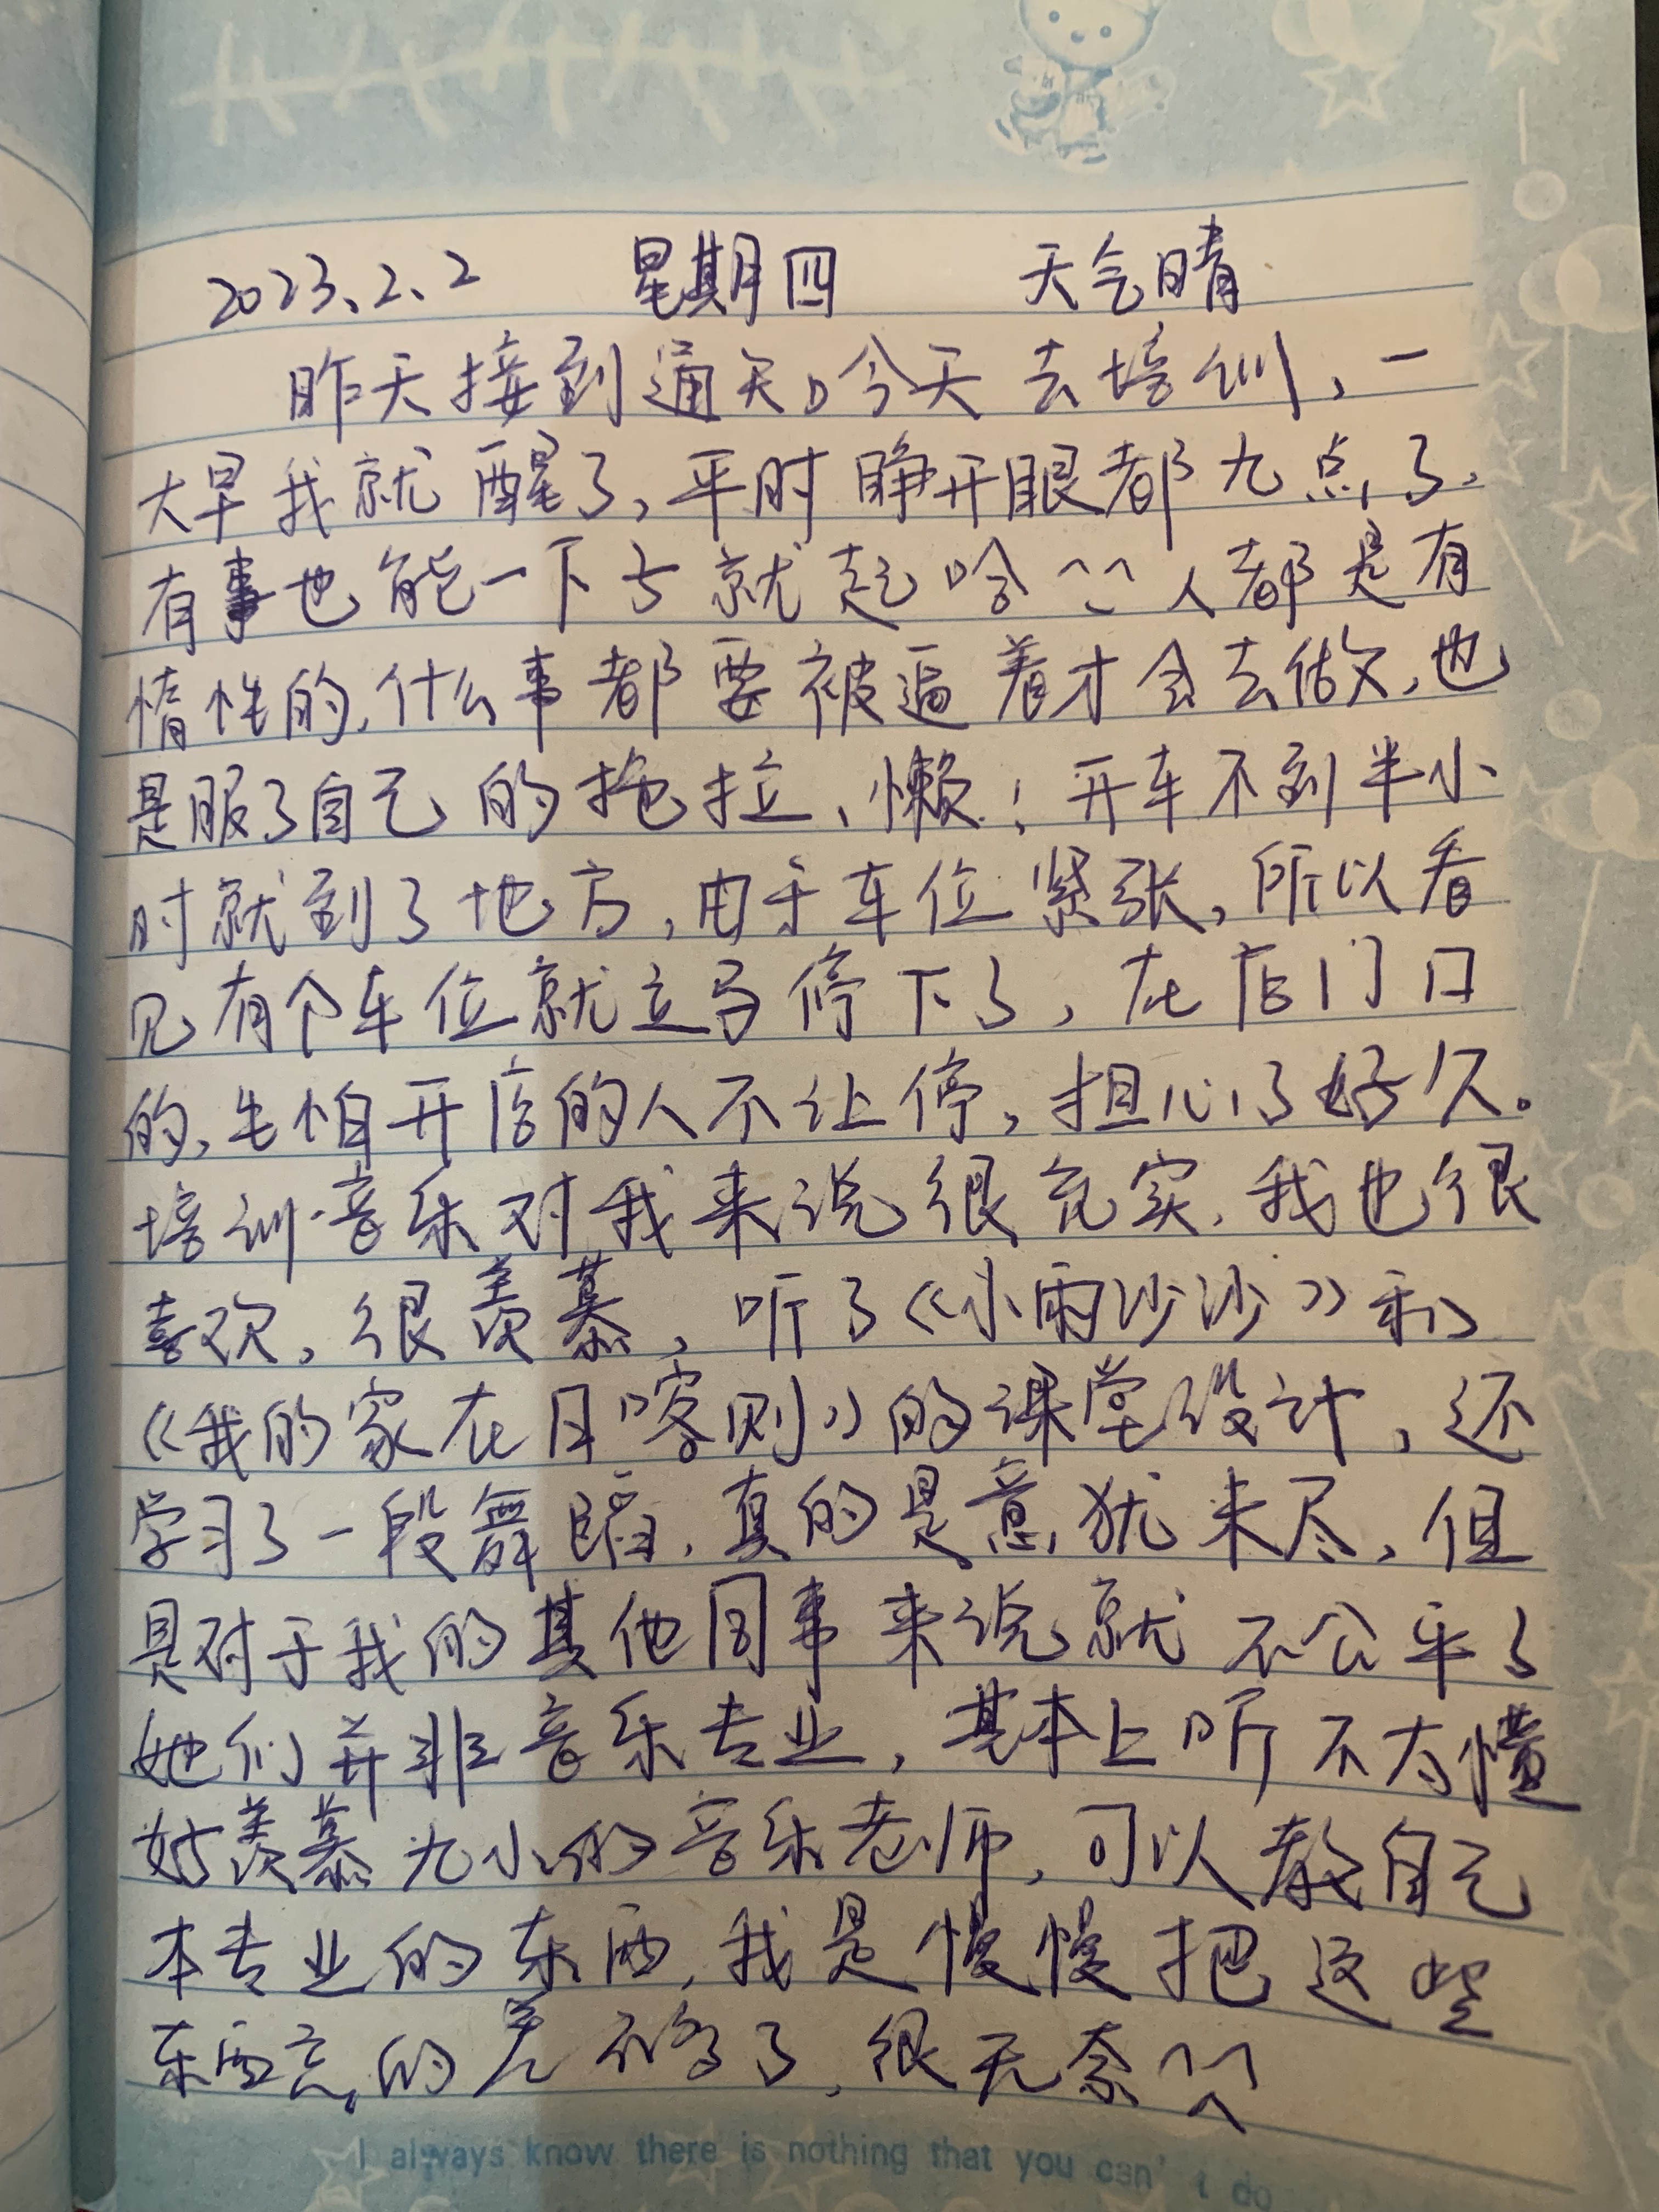 2023.2.2 星期四 天气晴
昨天接到通知今天去培训，一
大早我就醒了，平时睁开眼都九点了，
有事也能一下子就起哈^^人都是有
惰性的，什么事都要被逼着才会去做，也
是服了自己的拖拉、懒！开车不到半小
时就到了地方，由于车位紧张，所以看
见有个车位就立马停下了，在店门口
的，生怕开店的人不让停，担心了好久。
培训音乐对我来说很充实，我也很
喜欢，很羡慕，听了《小雨沙沙》和
《我的家在日喀则》的课堂设计，还
学习了一段舞蹈，真的是意犹未尽，但
是对于我的其他同事来说就不公平了
她们并非音乐专业，基本上听不太懂
好羡慕九小的音乐老师，可以教自己
本专业的东西，我是慢慢把这些
东西忘的差不多了，很无奈^^
I always know there is nothing that you can't do